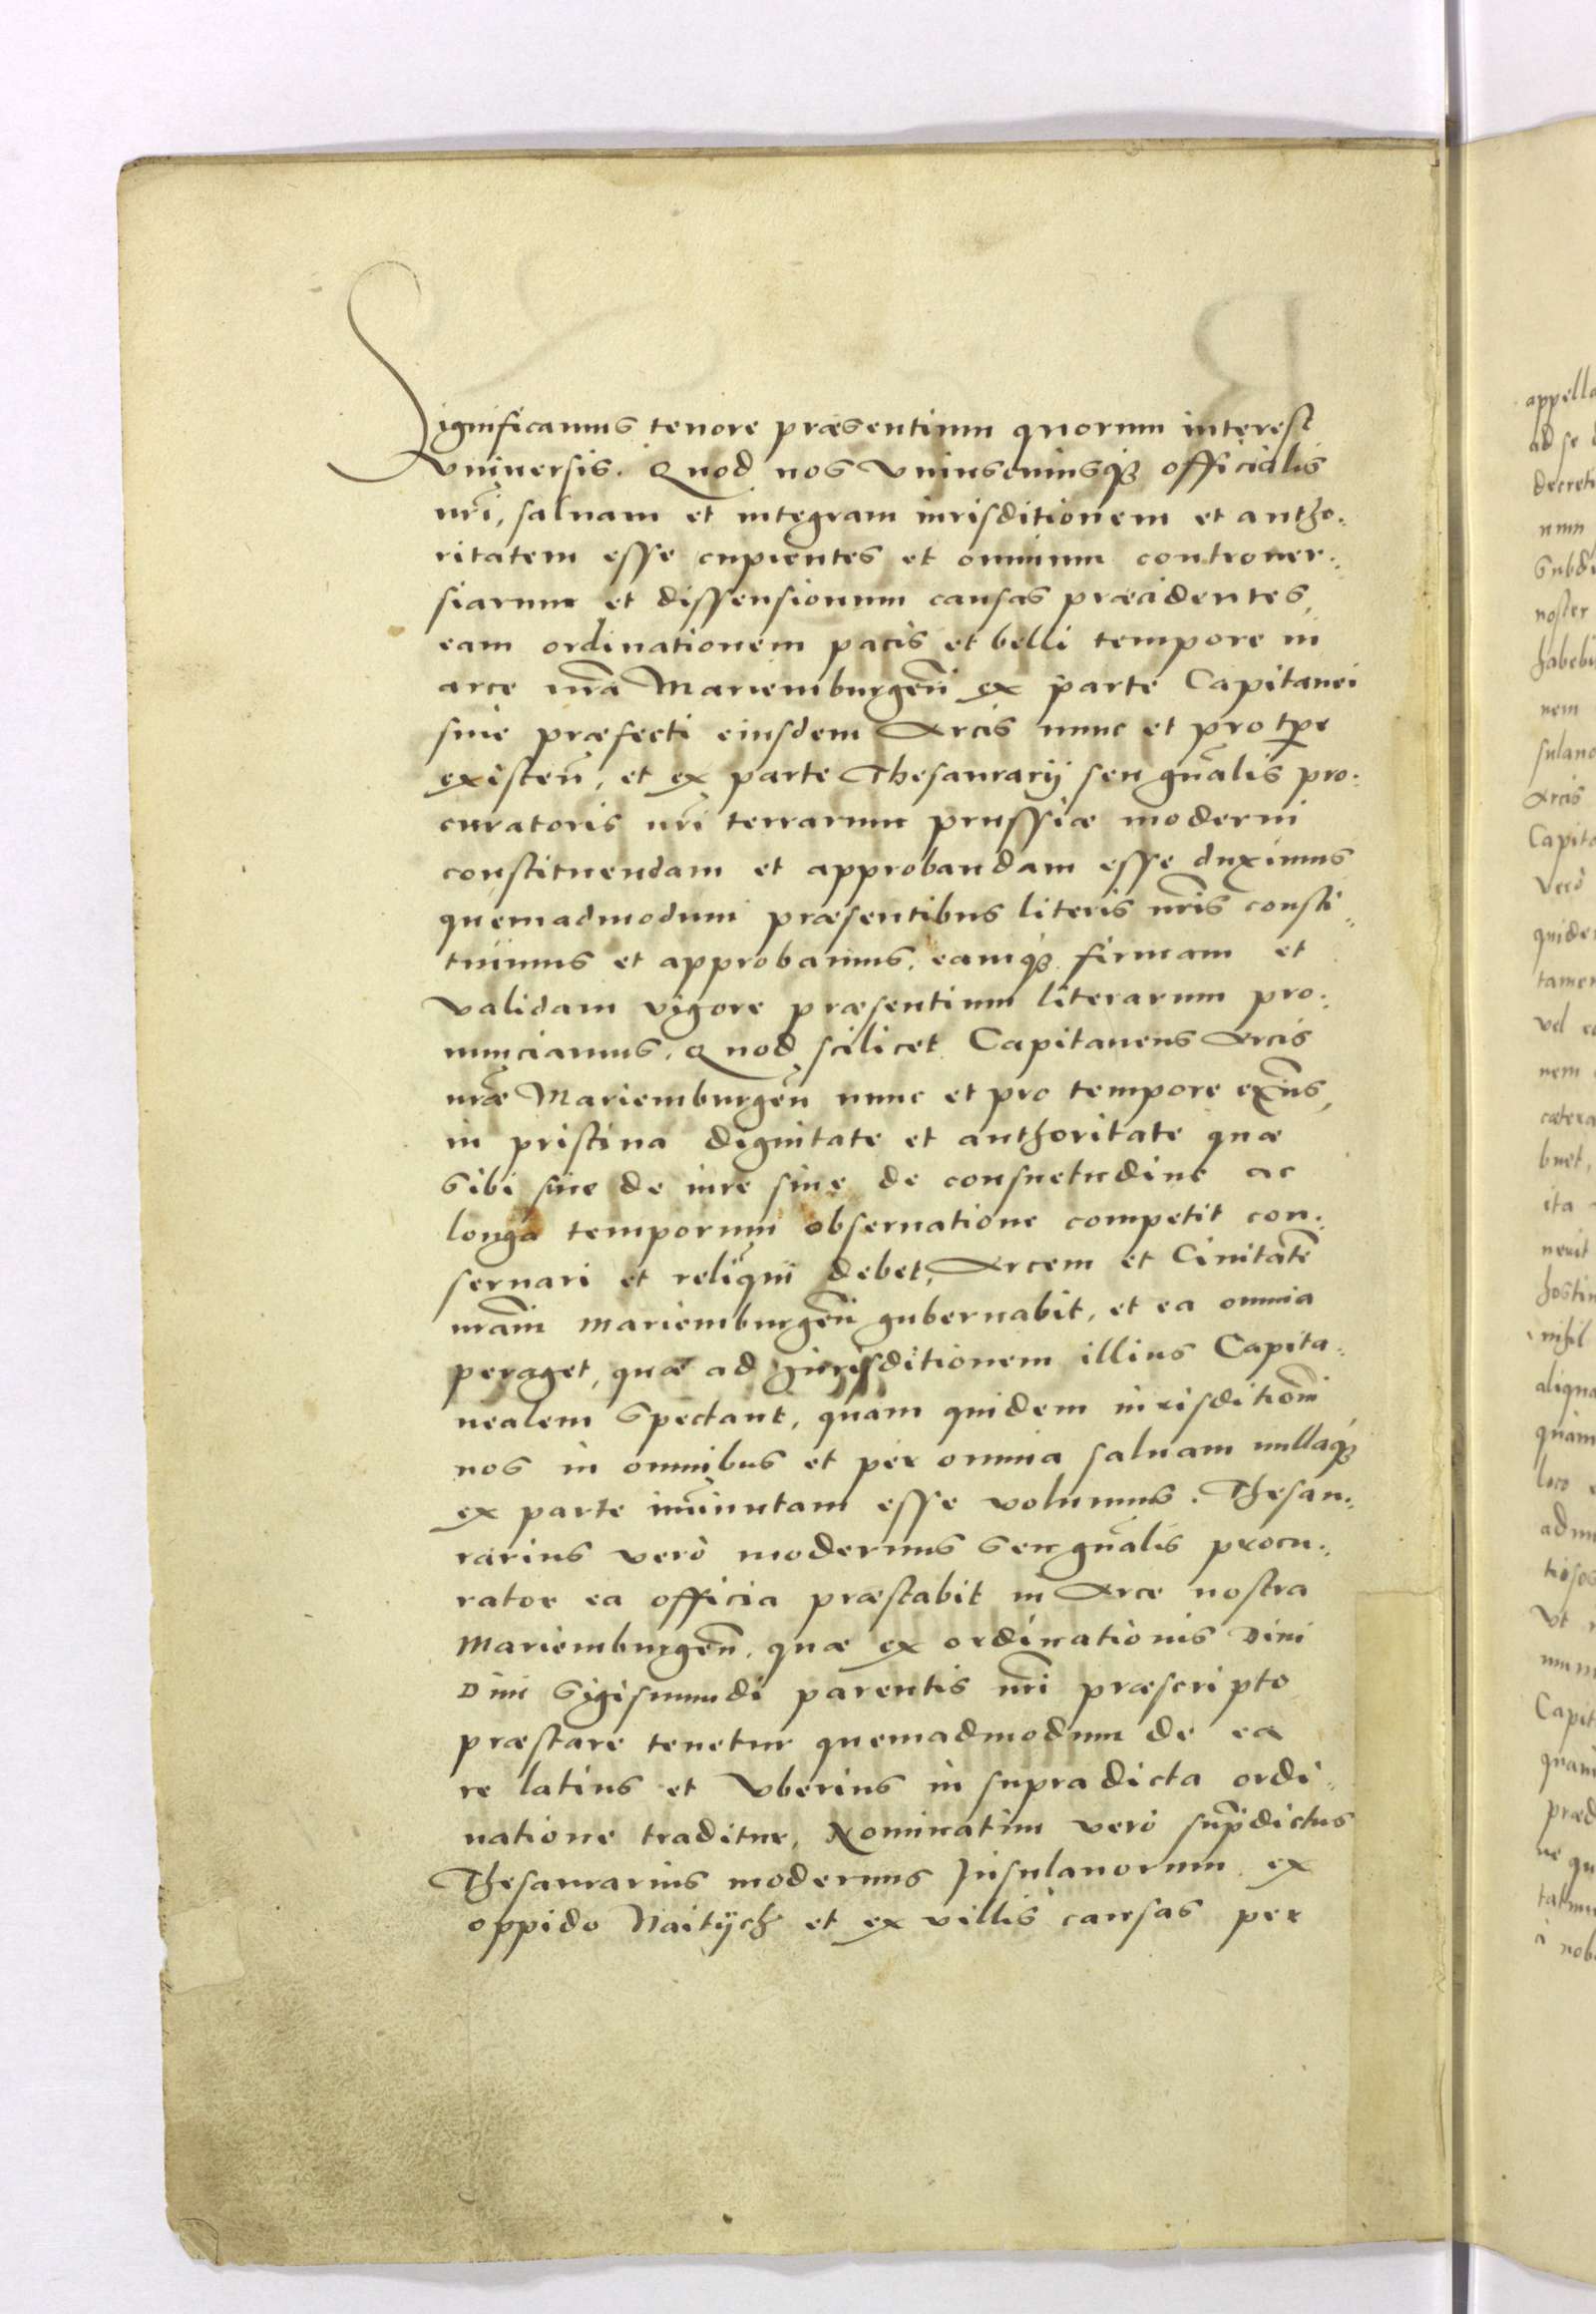 Significamus tenore præsentium quorum interest
vniuersis. Quod nos vniuscuiusq₃ officialis
nr̃i, saluam et integram iurisditionem et autho-
ritatem esse cupientes et omnium controuer-
siarum et dissensionum causas præcidentes,
eam ordinationem pacis et belli tempore in
arce nr̃a Mariemburgeñ ex parte Capitanei
siue præfecti eiusdem Arcis nunc et pro tp̃re
existeñ, et ex parte Thesaurarij seu gñalis pro-
curatoris nr̃i terrarum prussiæ moderni
constituendam et approbandam esse duximus
quemadmodum præsentibus literis nr̃is consti-
tuimus et approbamus, eamq₃ firmam et
validam vigore præsentium literarum pro-
nunciamus. Quod scilicet Capitaneus Arcis
nr̃æ Mariemburgeñ nunc et pro tempore exñs,
in pristina dignitate et authoritate quæ
sibi siue de iure siue de consuetudine ac
longa temporum obseruatione competit con-
seruari et relìqui debet, Arcem et Ciuitatẽ
nr̃am Mariemburgeñ gubernabit, et ea omnia
peraget, quæ ad Jurisditionem illius Capita-
nealem spectant, quam quidem iurisditionẽ
nos in omnibus et per omnia saluam nullaq₃
ex parte im̃inutam esse volumus. Thesau-
rarius verò modernus seu gñalis procu-
rator ea officia præstabit in Arce nostra
Mariemburgeñ, quæ ex ordinationis Diui
Diui Sigismundi parentis nr̃i præscripto
præstare tenetur quemadmodum de ea
re latius et vberius in supradicta ordi-
natione traditur, Nominatim verò sup̃dictus
Thesaurarius modernus Insulanorum ex
oppido Naitÿch et ex villis causas per
appella
ad se
decreti
num
subdi
noster
habebi
nem
sulano
Arcis
Capita
verò
quidem
tamen
vel
nem
cætera
buet,
ita
nerit
hostiu
nihil
aliqua
quam
loco
admi
tiosos
vt
Capit
quam
præd
ne qu
à nob